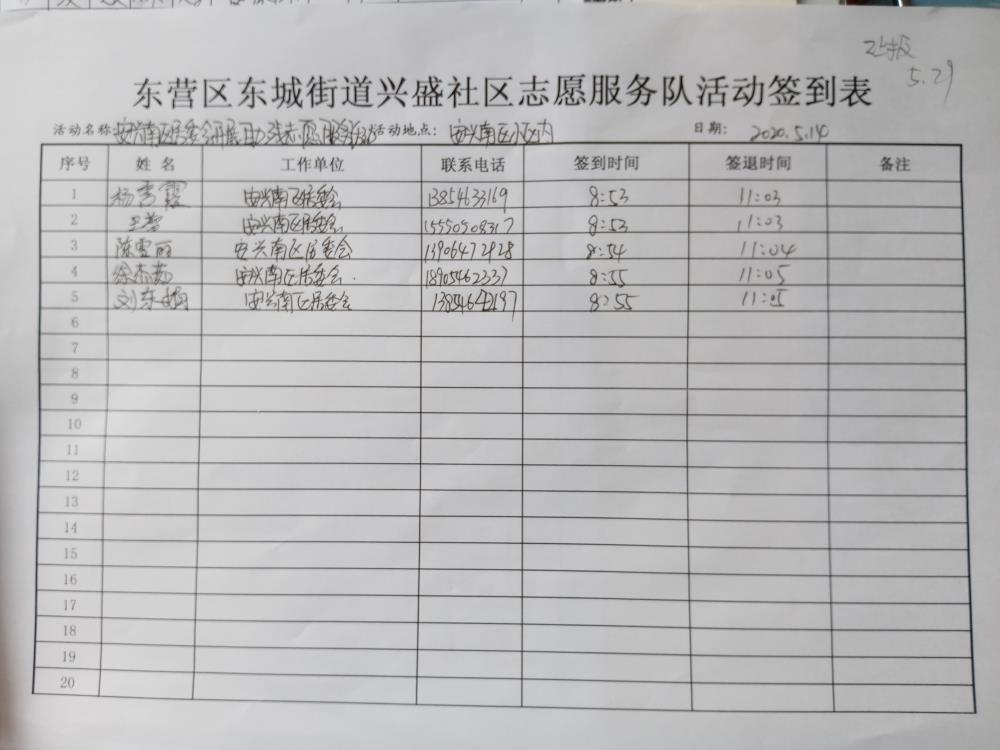 5.29
东营区东城街道兴盛社区志愿服务队活动签到表
活动名称: 安兴南区居委会开展助残志愿服务活动 活动地点: 安兴南区小区内 日期: 2020.5.14
序号 姓名 工作单位 联系电话 签到时间 签退时间 备注
1 杨秀霞 安兴南区居委会 13854633169 8:53 11:03
2 安兴南区居委会 15550508317 8:53 11:03
3 陈雪丽 安兴南区居委会 13906472928 8:54 11:04
4 徐杰 安兴南区居委会. 18905462337 8:55 11:05
5 刘东梅 安兴南区居委会 8:55 11:05
6
7
8
9
10
11
12
13
14
15
16
17
18
19
20